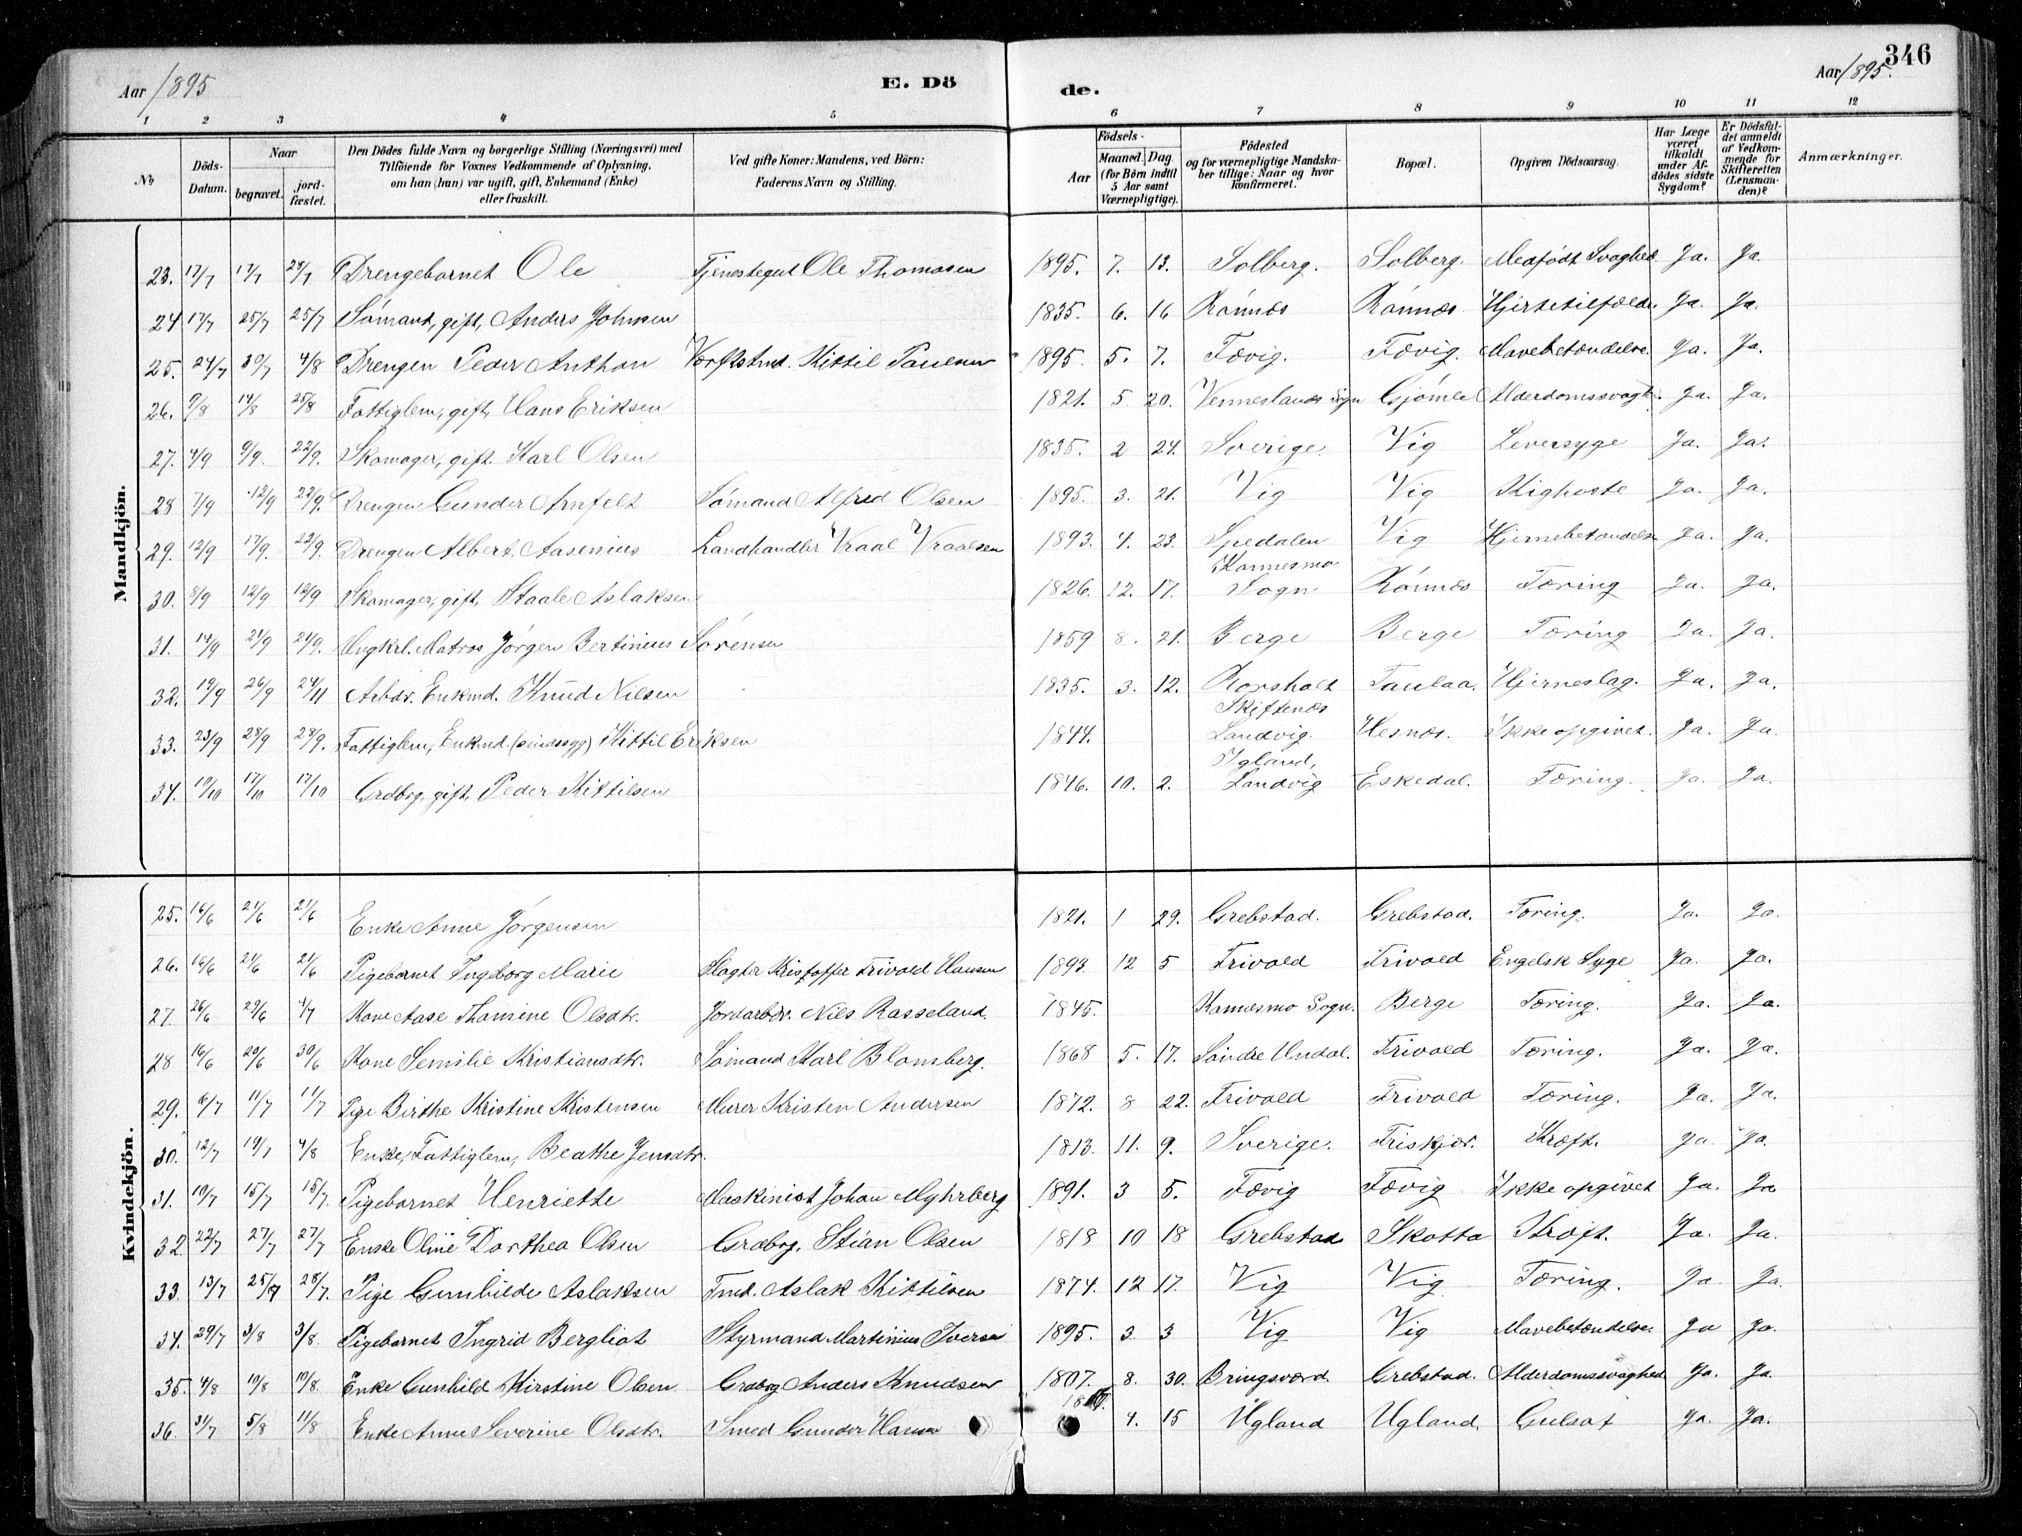 346
Aar 1895 E. Dö de. Aar 1895.
1 2 3 4 5 6 7 8 9 10 11 12
No
Döds-Datum.
Naar
begravet.
jord-fæstet.
Den Dödes fulde Navn og borgerlige Stilling (Næringsvei) med
Tilföiende for Voxnes Vedkommende af Oplysning,
om han (hun) var ugift, gift, Enkemand (Enke)
eller fraskilt.
Ved gifte Koner: Mandens, ved Börn:
Faderens Navn og Stilling.
Födsels-
Aar
Maaned. Dag.
(for Börn indtil
5 Aar samt
Værnepligtige).
Födested
og for værnepligtige Mandska-
ber tillige: Naar og hvor
konfirmeret.
Bopæl.
Opgiven Dödsaarsag.
Har Læge
været
tilkaldt
under Af-
dödes sidste
Sygdom?
Er Dödsfal-
det anmeldt
af Vedkom-
mende for
Skifteretten
(Lensman-
den)?
Anmærkninger.
Mandkjön.
23. 17/7 17/7 28/7 Drengebarnet Ole Tjenestegut Ole Thomasen 1895. 7. 13. Solberg. Solberg. Medfödt Svaghed Ja. Ja.
24 17/7 25/7 25/7 Sömand, gift, Anders Johnsen 1835. 6. 16 Rönnes Rönnes Hjertetilfælde. Ja. Ja.
25. 24/7 30/7 4/8 Drengen Peder Anthon Værftstmd. Kittil Paulsen 1895. 5. 7. Fævig. Fævig. Mavebetændelse. Ja. Ja.
26. 9/8 14/8 25/8 Fattiglem, gift, Hans Eriksen 1821. 5 20. Venneslands sogn Gjömle Alderdomssvagh. Ja. Ja.
27. 4/9 9/9. 22/9. Skomager, gift. Karl Olsen 1835. 2 24. Sverige. Vig Leversyge Ja. Ja.
28 7/9 12/9 22/9. Drengen Gunder Arnfelt Sömand Alfred Olsen 1895. 3. 21. Vig Vig Kighoste Ja. Ja.
29. 12/9 17/9. 22/9. Drengen Albert Aasenius Landhandler Vraal Vraalsen 1893. 4. 23. Spedalen Vig Hjernebetændelse Ja. Ja.
30. 8/9 12/9 12/9 Skomager, gift, Staale Aslaksen 1826. 12. 17. Kannesmo Sogn Rönnes Tæring Ja. Ja.
31. 14/9 21/9 21/9. Ungkrl. Matros Jörgen Bertinius Sörensen 1859 8. 21. Berge Berge Tæring Ja. Ja.
32. 19/9 26/9 24/11 Arbdr. Enkmd. Knud Nilsen 1835. 3. 12. Rorsholt Taulaa. Hjerneslag. Ja. Ja.
33. 23/9 28/9 28/9. Fattiglem, Enkmd. (sindssyg) Kittil Eriksen 1844. Skiftenes Landvig. Hesnes. Ikke opgivet. Ja. Ja.
34. 10/10 17/10 17/10 Grdbrg, gift, Peder Kittilsen 1846. 10. 2. Igland, Landvig Eskedal. Tæring. Ja. Ja.
Kvindekjön.
25. 16/6 21/6 21/6 Enke Anne Jörgensen 1821. 1 29. Grebstad. Grebstad. Tæring. Ja. Ja.
26. 16/6 21/6 21/6 Pigebarnet Ingeborg Marie Slagter Kristoffer Frivold Hansen 1893 12 5 Frivold Frivold Engelsk Syge Ja. Ja.
27. 26/6 29/6 4/7 Kone Aase Thomine Olsdtr. Jordarbdr. Nils Rasseland. 1845. Kannesmo Sogn. Berge Tæring. Ja. Ja.
28 16/6 20/6 30/6 Kone Semilie Kristiansdtr. Sömand Karl Blomberg. 1868 5. 17. Söndre Undal. Frivold Tæring. Ja. Ja.
29. 6/7 11/7 11/7 Pige Birthe Kristine Kristensen Murer Kristen Andersen 1872. 8 22. Frivold Frivold Tæring. Ja. Ja.
30. 12/7 19/7 4/8 Enke, Fattiglem, Beathe Jensdtr. 1813. 11. 9. Sverige. Friskjær. Kræft. Ja Ja.
31. 10/7 15/7 15/7. Pigebarnet Henriette Maskinist Johan Myhrberg 1891. 3 5. Fævig Fævig Ikke opgivet Ja. Ja
32. 22/7 27/7 27/7 Enke Oline Dorthea Olsen Grdbrg. Stian Olsen 1818 10 18 Grebstad Skotta Kræft. Ja. Ja.
33. 13/7 25/7 28/7. Pige Gunhilde Aslaksen Tmd. Aslak Kittilsen 1874. 12 17. Vig Vig Tæring. Ja Ja.
34. 29/7 3/8 3/8. Pigebarnet Ingrid Bergliot Styrmand Martinius Iversen 1895. 3. 3 Vig Vig Mavebetændelse. Ja Ja.
35. 4/8 10/8 10/8. Enke Gunhild Kirstine Olsen Grdbrg Anders Knudsen 1807. 8. 30. Bringsværd. Grebstad. Alderdomssvaghed Ja. Ja.
36. 31/7 5/8 11/8 Enke Anne Severine Olsdtr. Smed Gunder Hansen 4. 15 Ugland Ugland. Gulsot Ja. Ja.